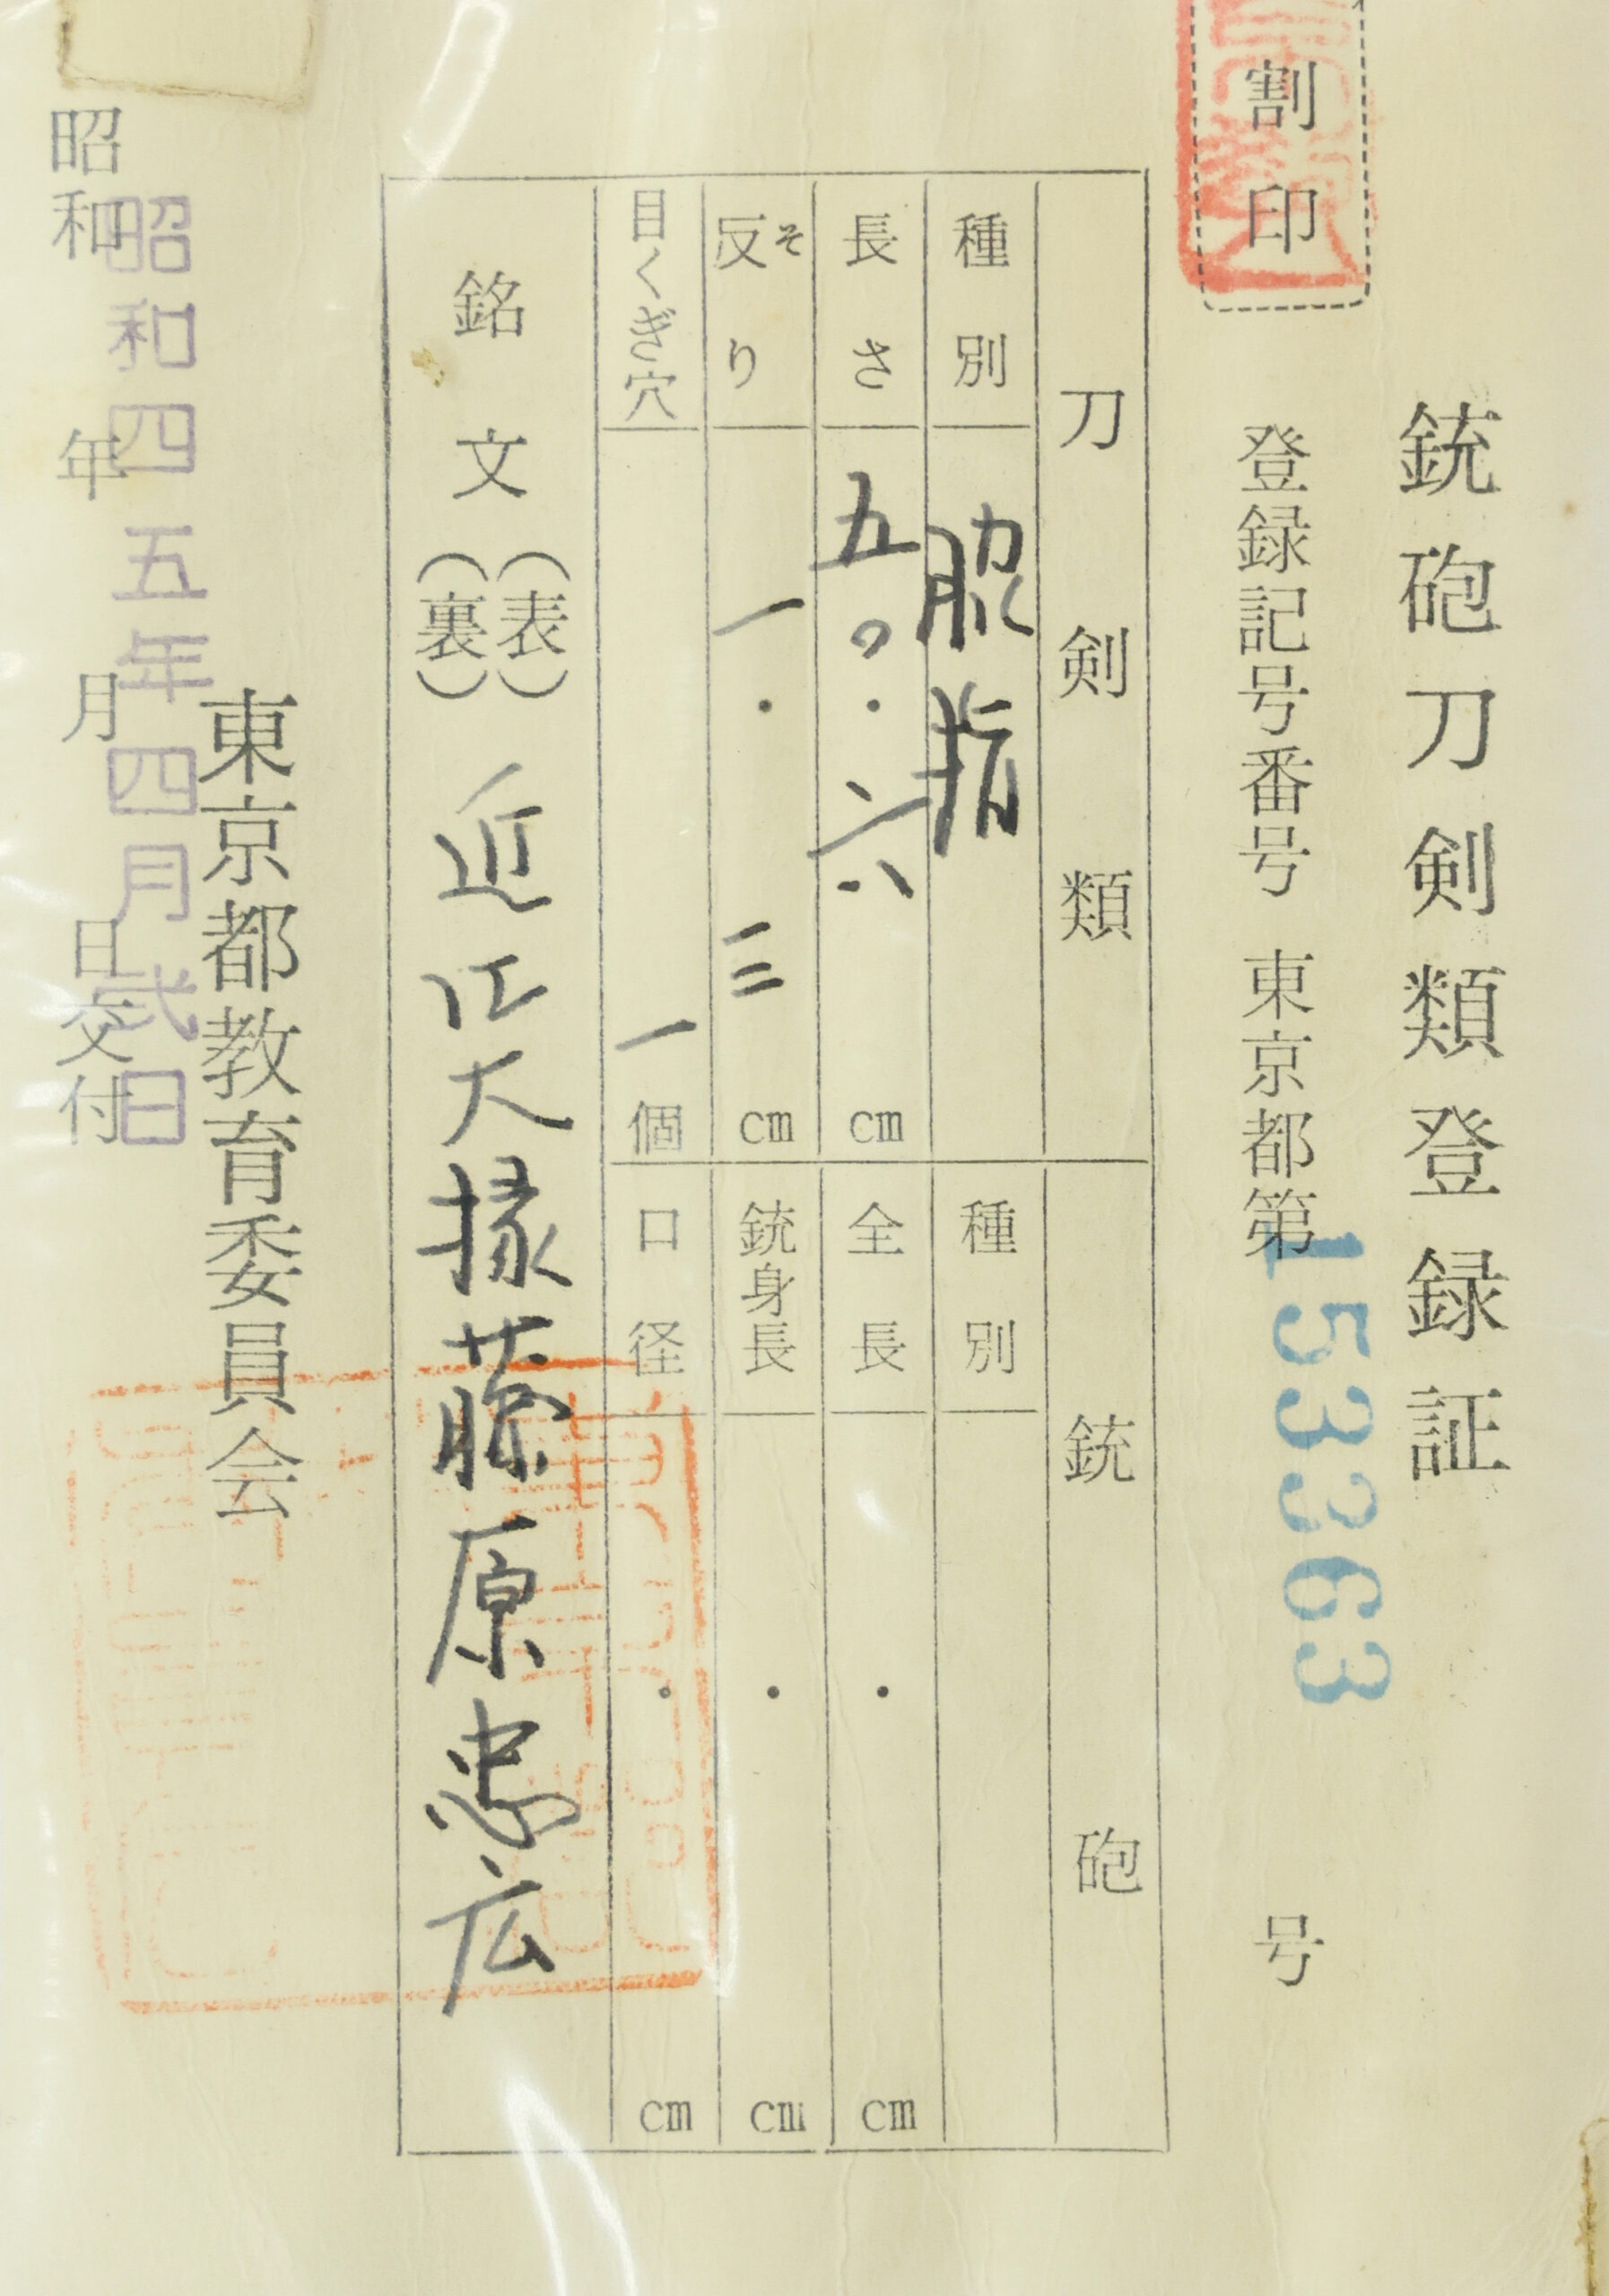 銃砲刀剣類登録証
割印
登録記号番号 東京都第153363号
刀剣類
種別 脇指
長さ 五〇・六 cm
反り そ 一・三 cm
目くぎ穴 一個
銘文(表)(裏) 近江大掾藤原忠広
銃砲
種別
全長 ・ cm
銃身長 ・ cm
口径 ・ cm
東京都教育委員会
昭和四五年四月弐日
昭和 年 月 日交付